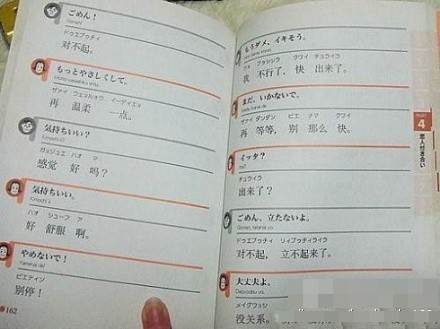 ごめん！
Gomen!
ドゥエブゥチィ
对不起。
もっとやさしくして。
ザァイ ウェンロォウ イーディエン
再 温柔 一点。
気持ちいい？
Kimochi ii?
ガンジュエ ハオ マ
感觉 好 吗？
気持ちいい。
Kimochi ii.
ハオ シューフ ア
好 舒服 啊。
やめないで！
Yamenai de!
ビエティン
别停！
162
もうダメ、イキそう。
我 不行了，快 出来了。
まだ、いかないで。
ザァイ ダンダン ビエ ナマ クワイ
再 等等，别 那么 快。
イッタ？
チュライラ
出来了？
ごめん、立たないよ。
Gomen, tatanai yo.
ドゥエブゥチィ リィブゥチィライラ
对不起，立不起来了。
大丈夫よ。
Daijoubu yo.
メイグワンシィ
没关系。
PART
4
恋人付き合い